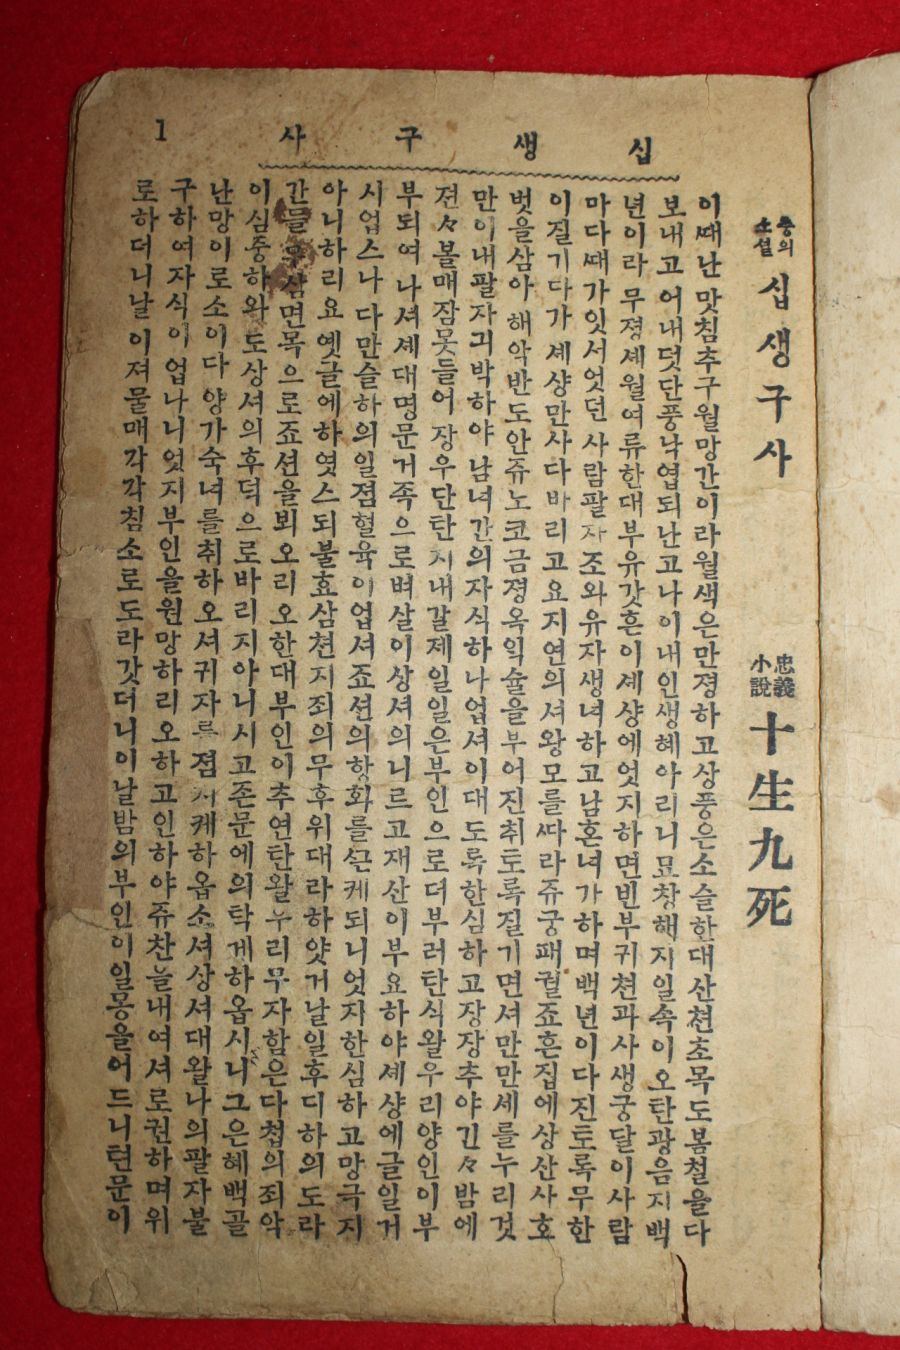 십생구사
1
충의
소설
십생구사
忠義
小說
十生九死
이때난맛침추구월망간이라월색은만졍하고상풍은소슬한대산쳔초목도봄철을다
보내고어내덧단풍낙엽되난고나이내인생혜아리니묘창해지일속이오탄광음지백
년이라무졍셰월여류한대부유갓흔이셰샹에엇지하면빈부귀쳔과사생궁달이사람
마다때가잇서엇던사람팔자조와유자생녀하고남혼녀가하며백년이다진토록무한
이질기다가셰샹만사다바리고요지연의셔왕모를따라쥬궁패궐죠흔집에상산사호
벗을삼아해악반도안쥬노코금졍옥익슐을부어진취토록질기면셔만만셰를누리것
만이내팔자긔박하야남녀간의자식하나업셔이대도록한심하고장장추야긴々밤에
젼々볼매잠못들어장우단탄지내갈제일일은부인으로더부러탄식왈우리양인이부
부되여나셔셰대명문거족으로벼살이상셔의니르고재산이부요하야셰샹에글일거
시업스나다만슬하의일졈혈육이업셔죠션의향화를끈케되니엇지한심하고망극지
아니하리요옛글에하엿스되불효삼쳔지죄의무후위대라하얏거날일후디하의도라
간들무삼면목으로죠션을뵈오리오한대부인이추연탄왈우리무자함은다쳡의죄악
이심중하와도상셔의후덕으로바리지아니시고존문에의탁게하옵시니그은혜백골
난망이로소이다양가숙녀를취하오셔귀자를졈지케하옵소셔상셔대왈나의팔자불
구하여자식이업나니엇지부인을원망하리오하고인하야쥬찬을내여셔로권하며위
로하더니날이져물매각각침소로도라갓더니이날밤의부인이일몽을어드니텬문이